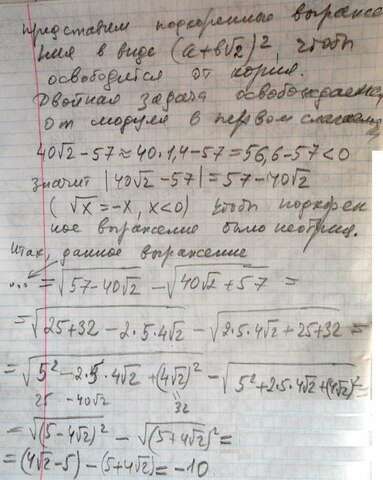 представим подкоренные выраже
ния в виде (a+b√2)², чтобы
освободится от корня.
Двойная задача освобождаемся
от модуля в первом слагаемом
40√2-57≈40·1,4-57=56,6-57<0
значит |40√2-57|=57-40√2
(√x=-x, x<0) чтобы подкорен
ное выражение было неотриц.
Итак, данное выражение
... =√(57-40√2) -√(40√2+57) =
=√(25+32-2·5·4√2) -√(2·5·4√2+25+32) =
=√(5²-2·5·4√2+(4√2)²) -√(5²+2·5·4√2+(4√2)²)=
25 -40√2 32
=√(5-4√2)² -√(5+4√2)²=
=(4√2-5)-(5+4√2)=-10